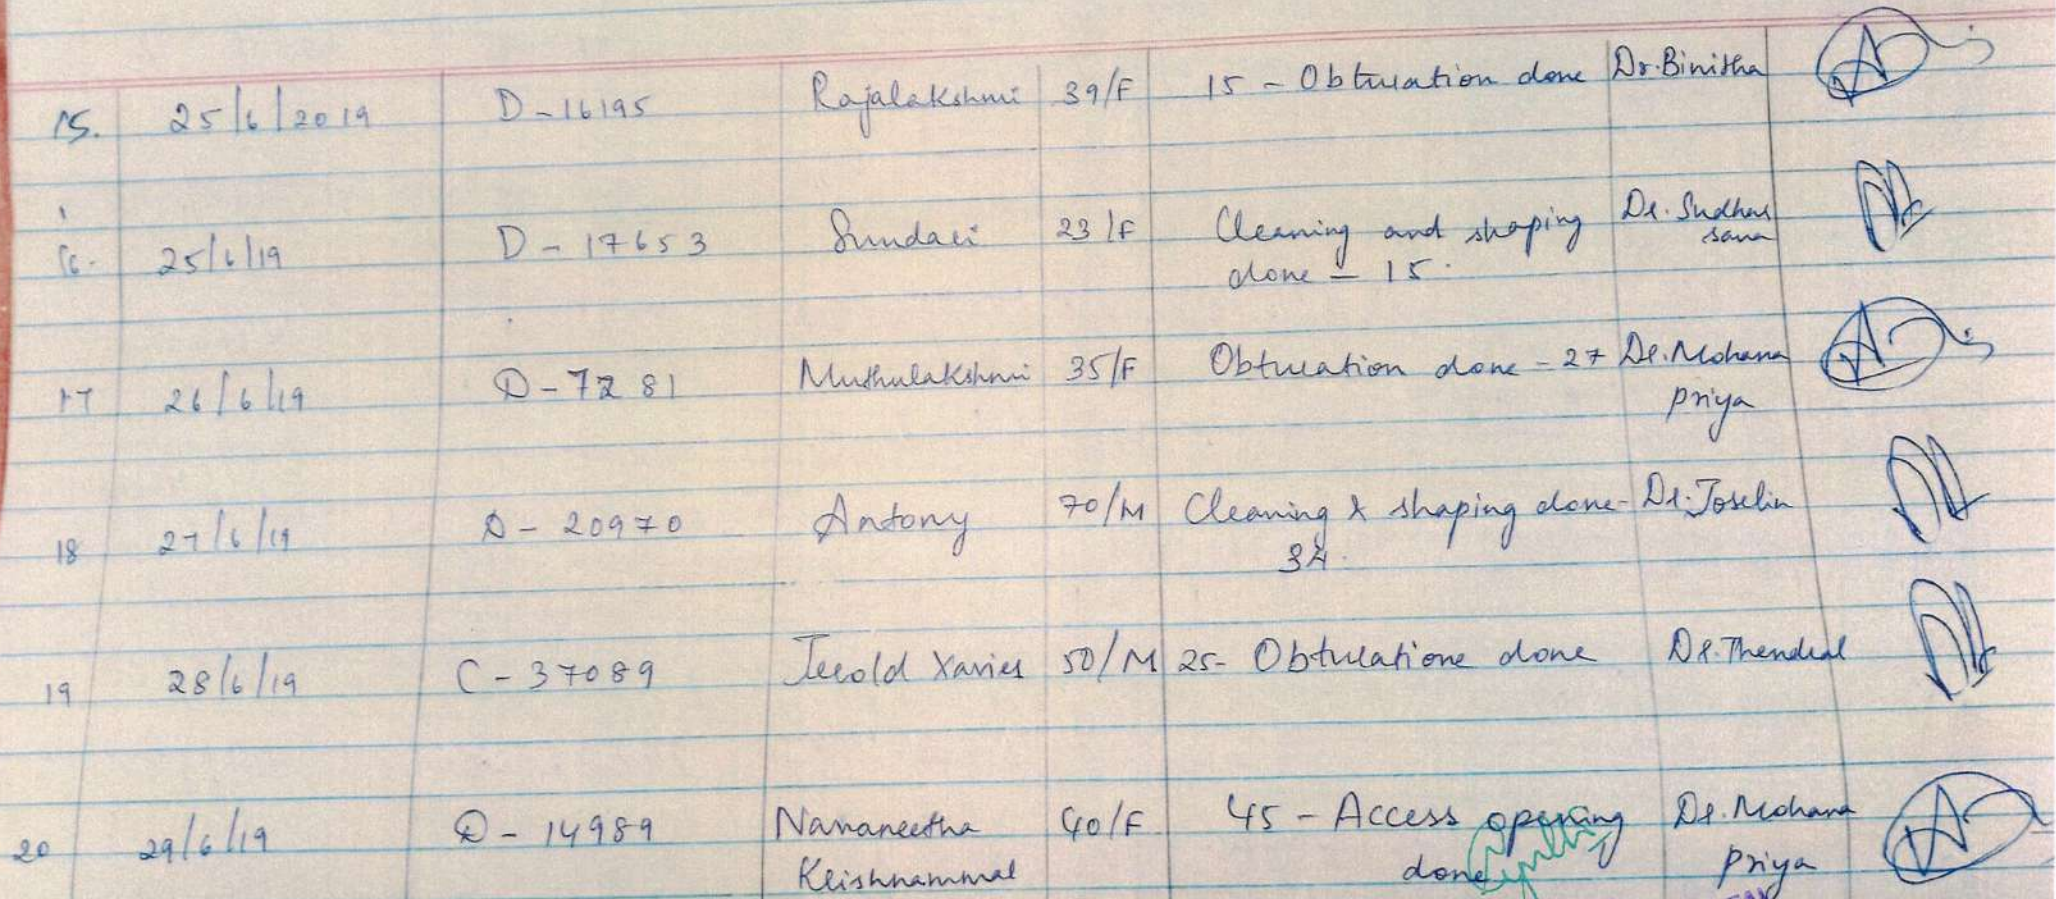 15. 25/6/2019 D-16195 Rajalakshmi 39/F 15 - Obturation done Dr. Binitha
16. 25/6/19 D-17653 Sundari 23/F Cleaning and shaping Dr. Sudhar
done - 15. sana
17 26/6/19 D-7281 Muthulakshmi 35/F Obturation done - 27 Dr. Mohana
priya
18 27/6/19 D-20970 Antony 70/M Cleaning & shaping done- Dr. Joselin
34.
19 28/6/19 C-37089 Jerold Xavier 50/M 25- Obturatione done Dr. Thendral
20 29/6/19 D-14989 Navaneetha 40/F 45 - Access opening Dr. Mohana
Krishnammal done priya